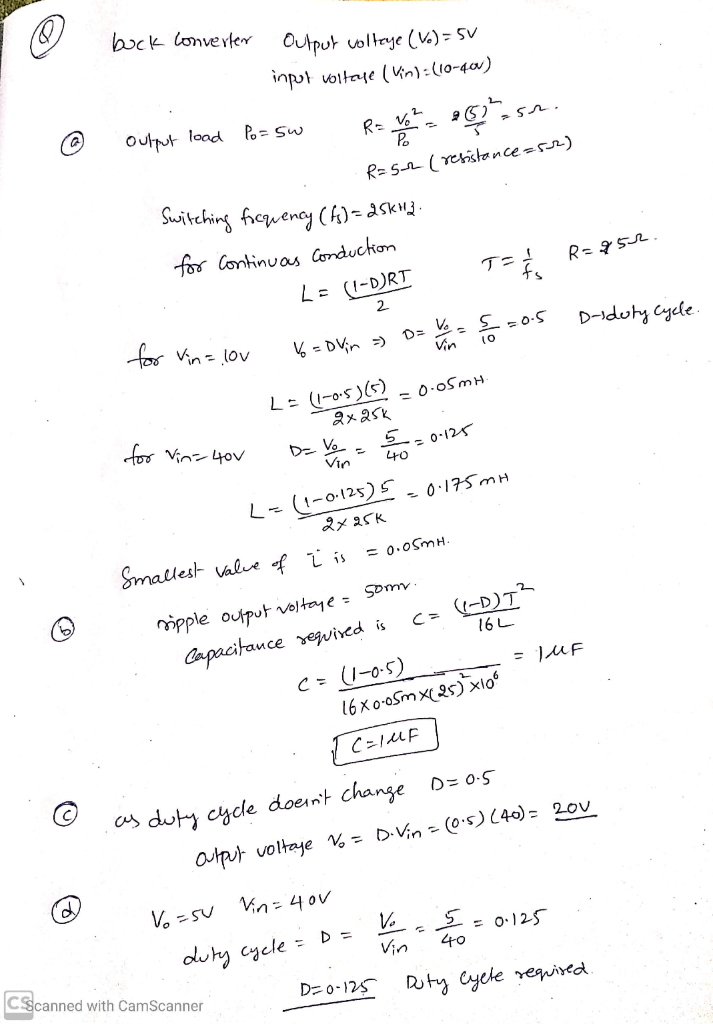 Q buck Converter Output voltage (Vo) = 5V
input voltage (Vin) = (10-40V)
a output load Po = 5W R = Vo²/Po = (5)²/5 = 5Ω.
R = 5Ω (resistance = 5Ω)
Switching frequency (fs) = 25kHz.
for Continuous Conduction T = 1/fs R = 5Ω.
L = (1-D)RT/2
for Vin = 10V Vo = DVin ⇒ D = Vo/Vin = 5/10 = 0.5 D→duty cycle.
L = (1-0.5)(5)/2×25k = 0.05mH
for Vin = 40V D = Vo/Vin = 5/40 = 0.125
L = (1-0.125)5/2×25k = 0.175mH
Smallest value of L is = 0.05mH.
b ripple output voltage = 50mv.
Capacitance required is C = (1-D)T²/16L
C = (1-0.5)/16×0.05m×(25)²×10⁶ = 1μF
C = 1μF
c as duty cycle doesn't change D = 0.5
output voltage Vo = D.Vin = (0.5)(40) = 20V
d Vo = 5V Vin = 40V
duty cycle = D = Vo/Vin = 5/40 = 0.125
D = 0.125 Duty Cycle required.
CS Scanned with CamScanner